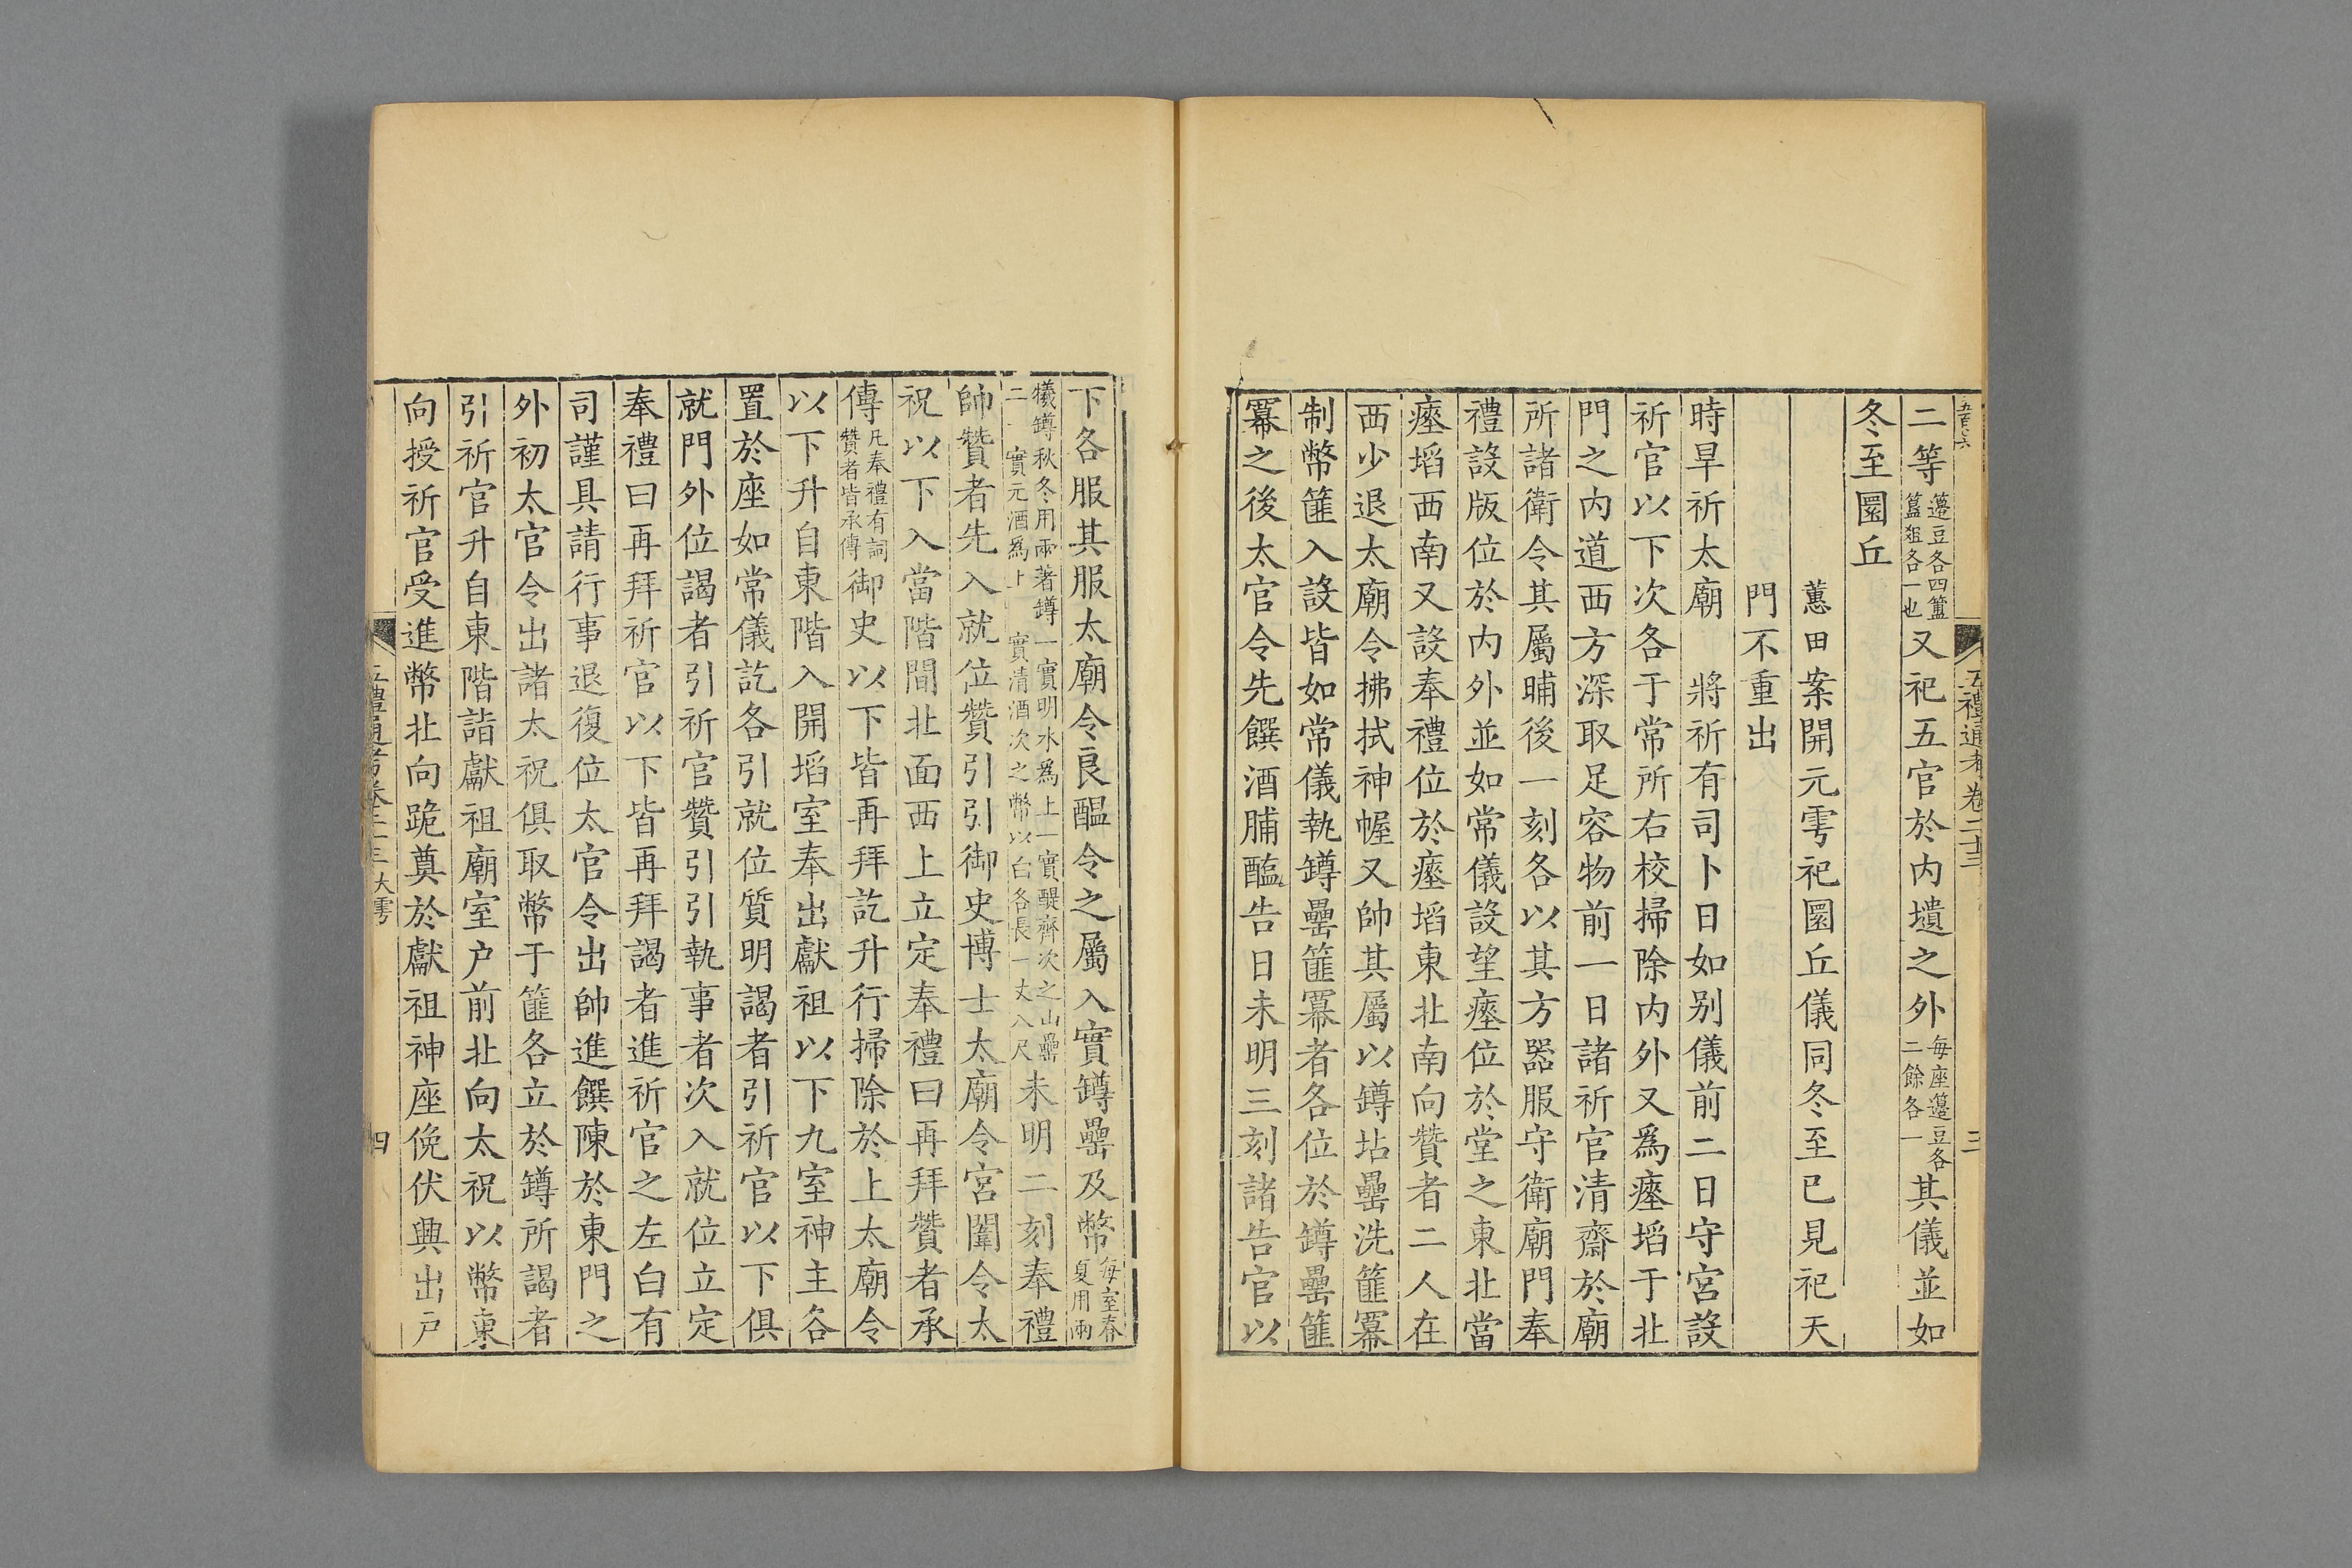 五禮通考卷二十三
三
二等籩豆各四簠簋俎各一也又祀五官於内壝之外每座籩豆各二餘各一其儀並如
冬至圜丘
蕙田案開元雩祀圜丘儀同冬至已見祀天
門不重出
時旱祈太廟　將祈有司卜日如别儀前二日守宮設
祈官以下次各于常所右校掃除内外又爲瘞埳于北
門之内道西方深取足容物前一日諸祈官清齋於廟
所諸衛令其屬晡後一刻各以其方器服守衛廟門奉
禮設版位於内外並如常儀設望瘞位於堂之東北當
瘞埳西南又設奉禮位於瘞埳東北南向贊者二人在
西少退太廟令拂拭神幄又帥其屬以罇坫罍洗篚羃
制幣篚入設皆如常儀執罇罍篚羃者各位於罇罍篚
羃之後太官令先饌酒脯醢告日未明三刻諸告官以
下各服其服太廟令良醖令之屬入實罇罍及幣每室春夏用兩
犧罇秋冬用兩著罇一實明水爲上一實醍齊次之山罍二一實元酒爲上一實清酒次之幣以白各長一丈八尺未明二刻奉禮
帥贊者先入就位贊引引御史博士太廟令宮闈令太
祝以下入當階間北面西上立定奉禮曰再拜贊者承
傳凡奉禮有詞贊者皆承傳御史以下皆再拜訖升行掃除於上太廟令
以下升自東階入開埳室奉出獻祖以下九室神主各
置於座如常儀訖各引就位質明謁者引祈官以下俱
就門外位謁者引祈官贊引引執事者次入就位立定
奉禮曰再拜祈官以下皆再拜謁者進祈官之左白有
司謹具請行事退復位太官令出帥進饌陳於東門之
外初太官令出諸太祝俱取幣于篚各立於罇所謁者
引祈官升自東階詣獻祖廟室户前北向太祝以幣東
向授祈官受進幣北向跪奠於獻祖神座俛伏興出戶
五禮通考卷二十三　大雩
四